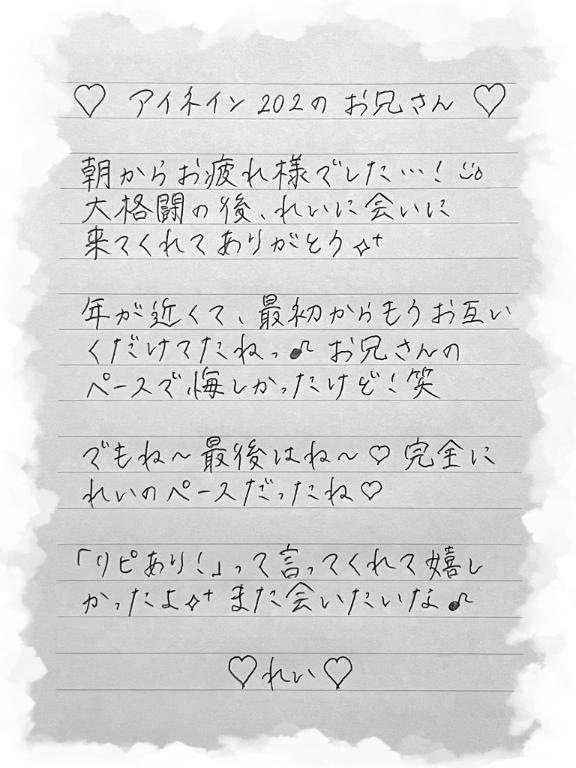 ♡ アイネイン 202の お兄さん ♡
朝からお疲れ様でした…!
大格闘の後、れいに会いに
来てくれてありがとう
年が近くて、最初からもうお互い
くだけてたねっ♪ お兄さんの
ペースで悔しかったけど!笑
でもね~最後はね~♡ 完全に
れいのペースだったね♡
「リピあり!」って言ってくれて嬉し
かったよ また会いたいな♪
♡れい♡